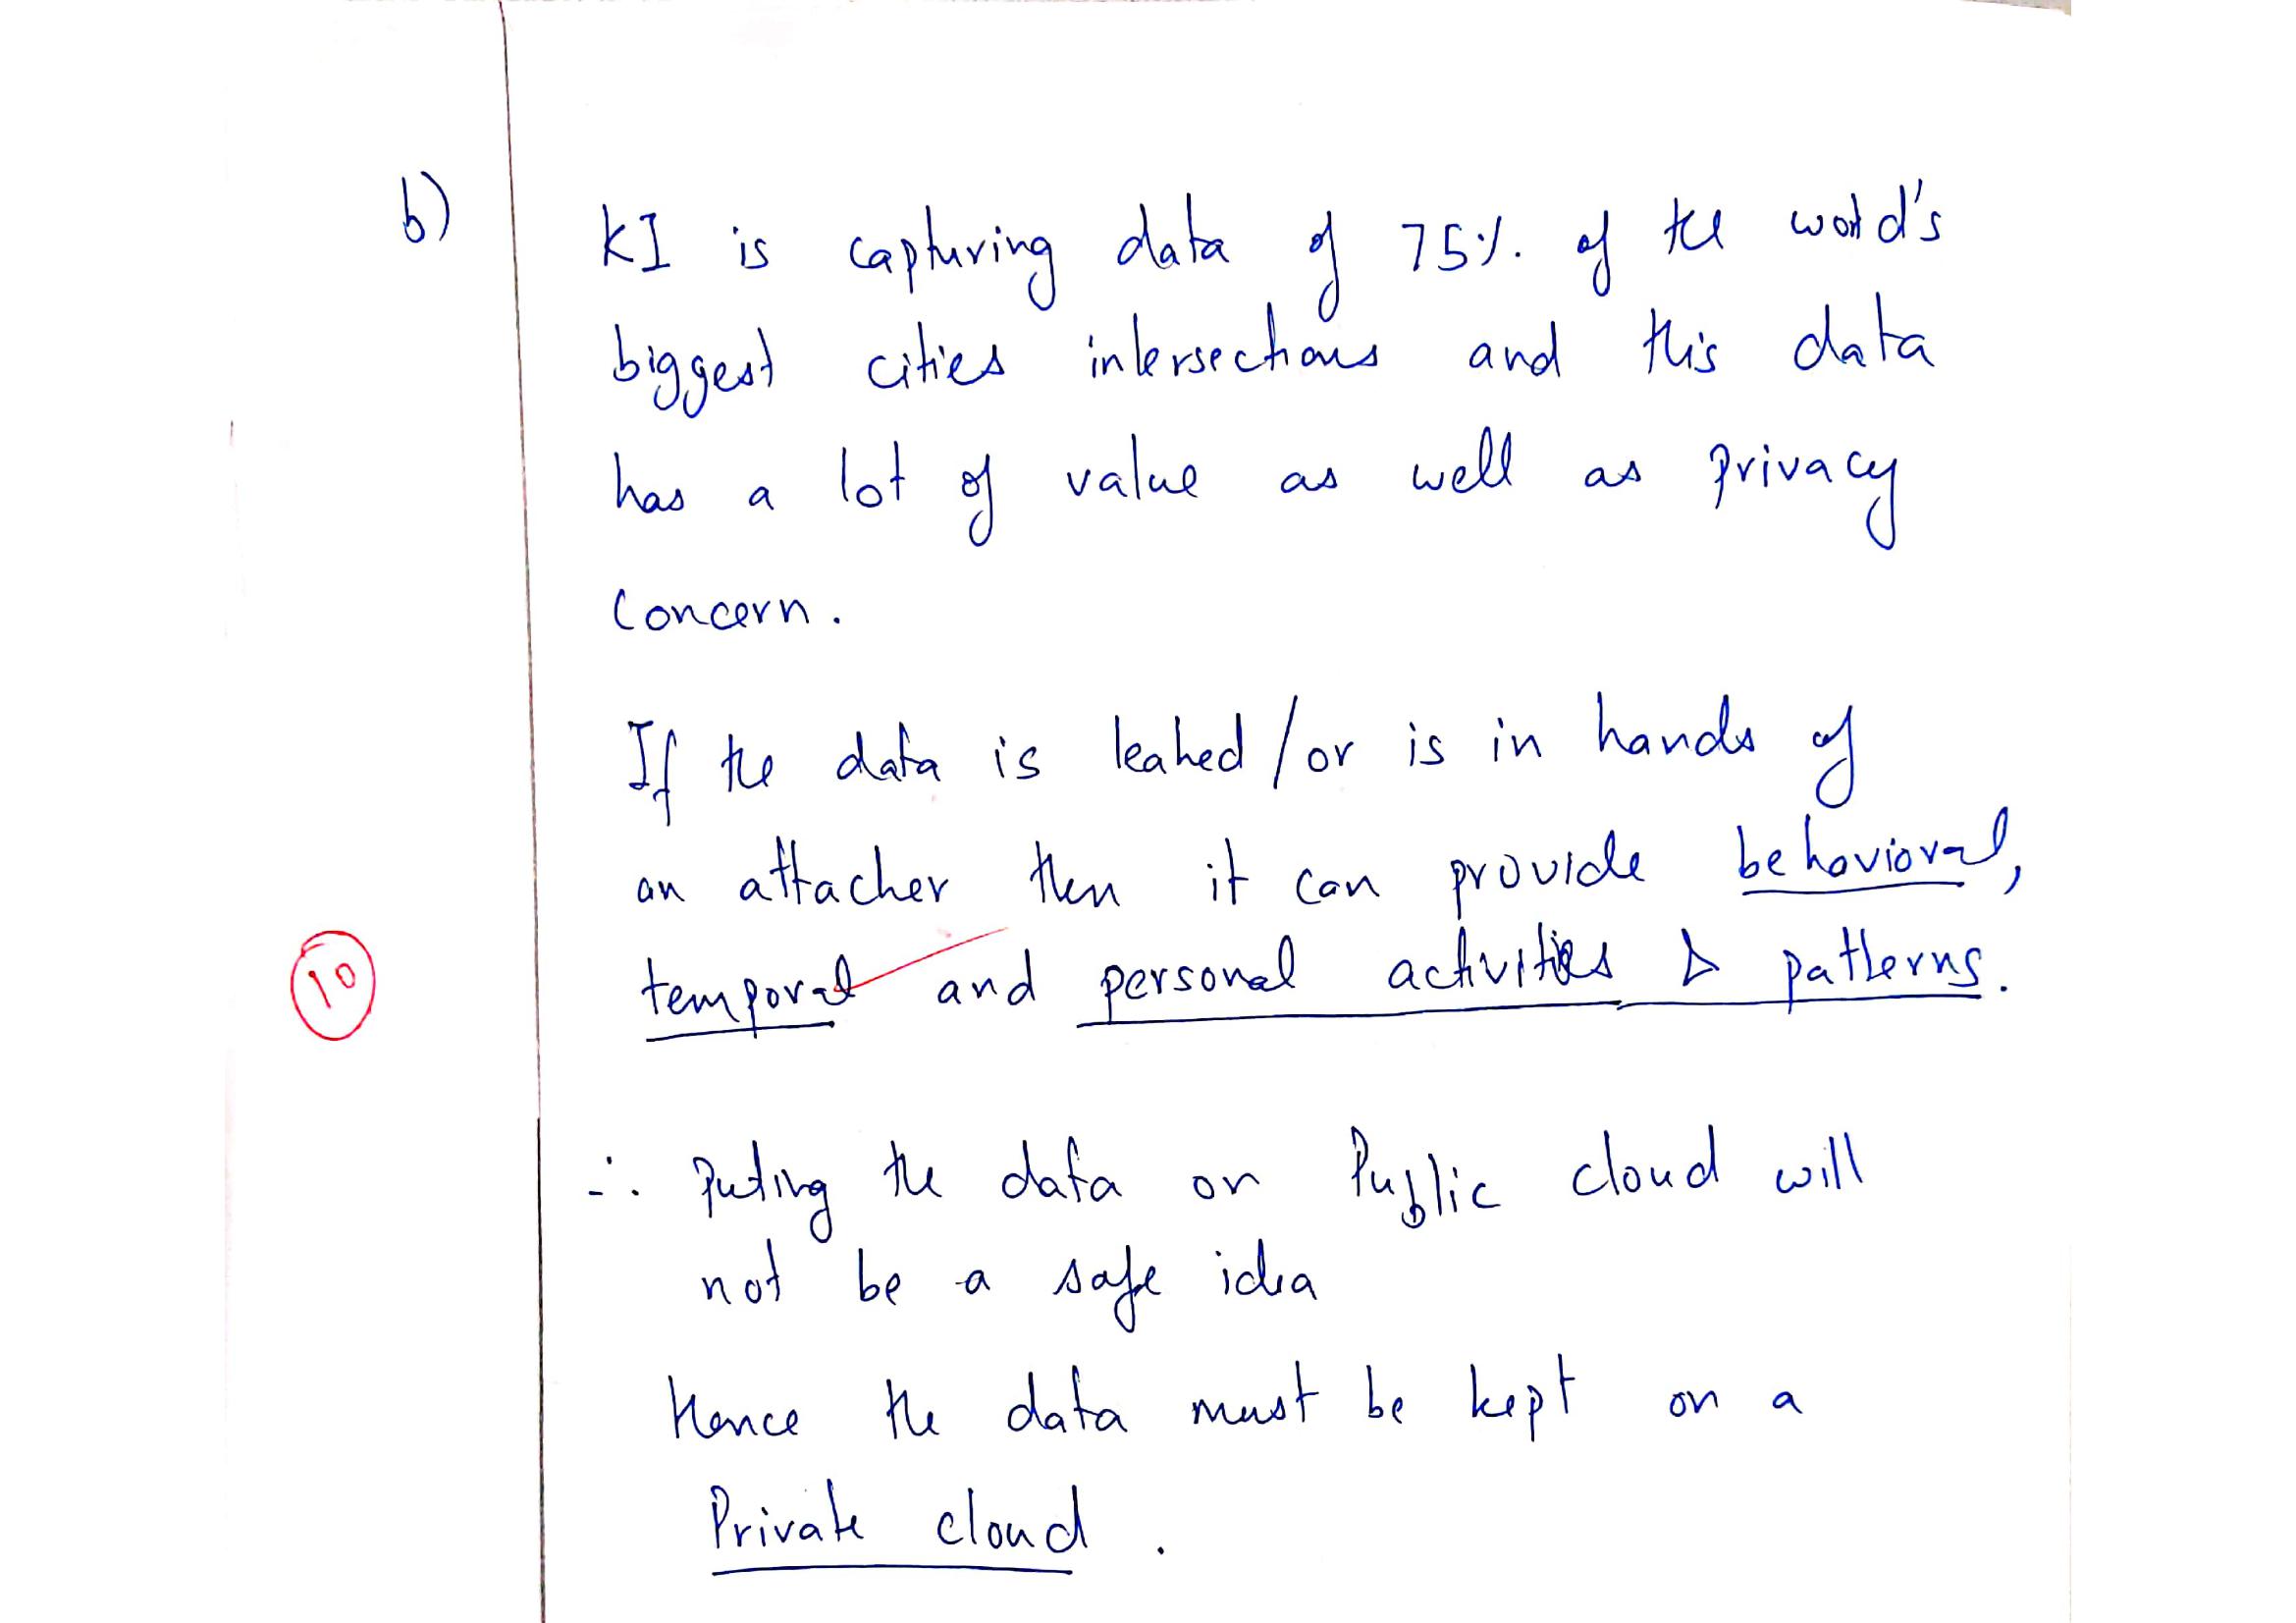 b) KI is capturing data of 75% of the world's
biggest cities intersections and this data
has a lot of value as well as privacy
concern.
If the data is leaked / or is in hands of
an attacker then it can provide behavioral,
10 temporal and personal activities & patterns.
∴ Puting the data on Public cloud will
not be a safe idea
Hence the data must be kept on a
Private cloud.